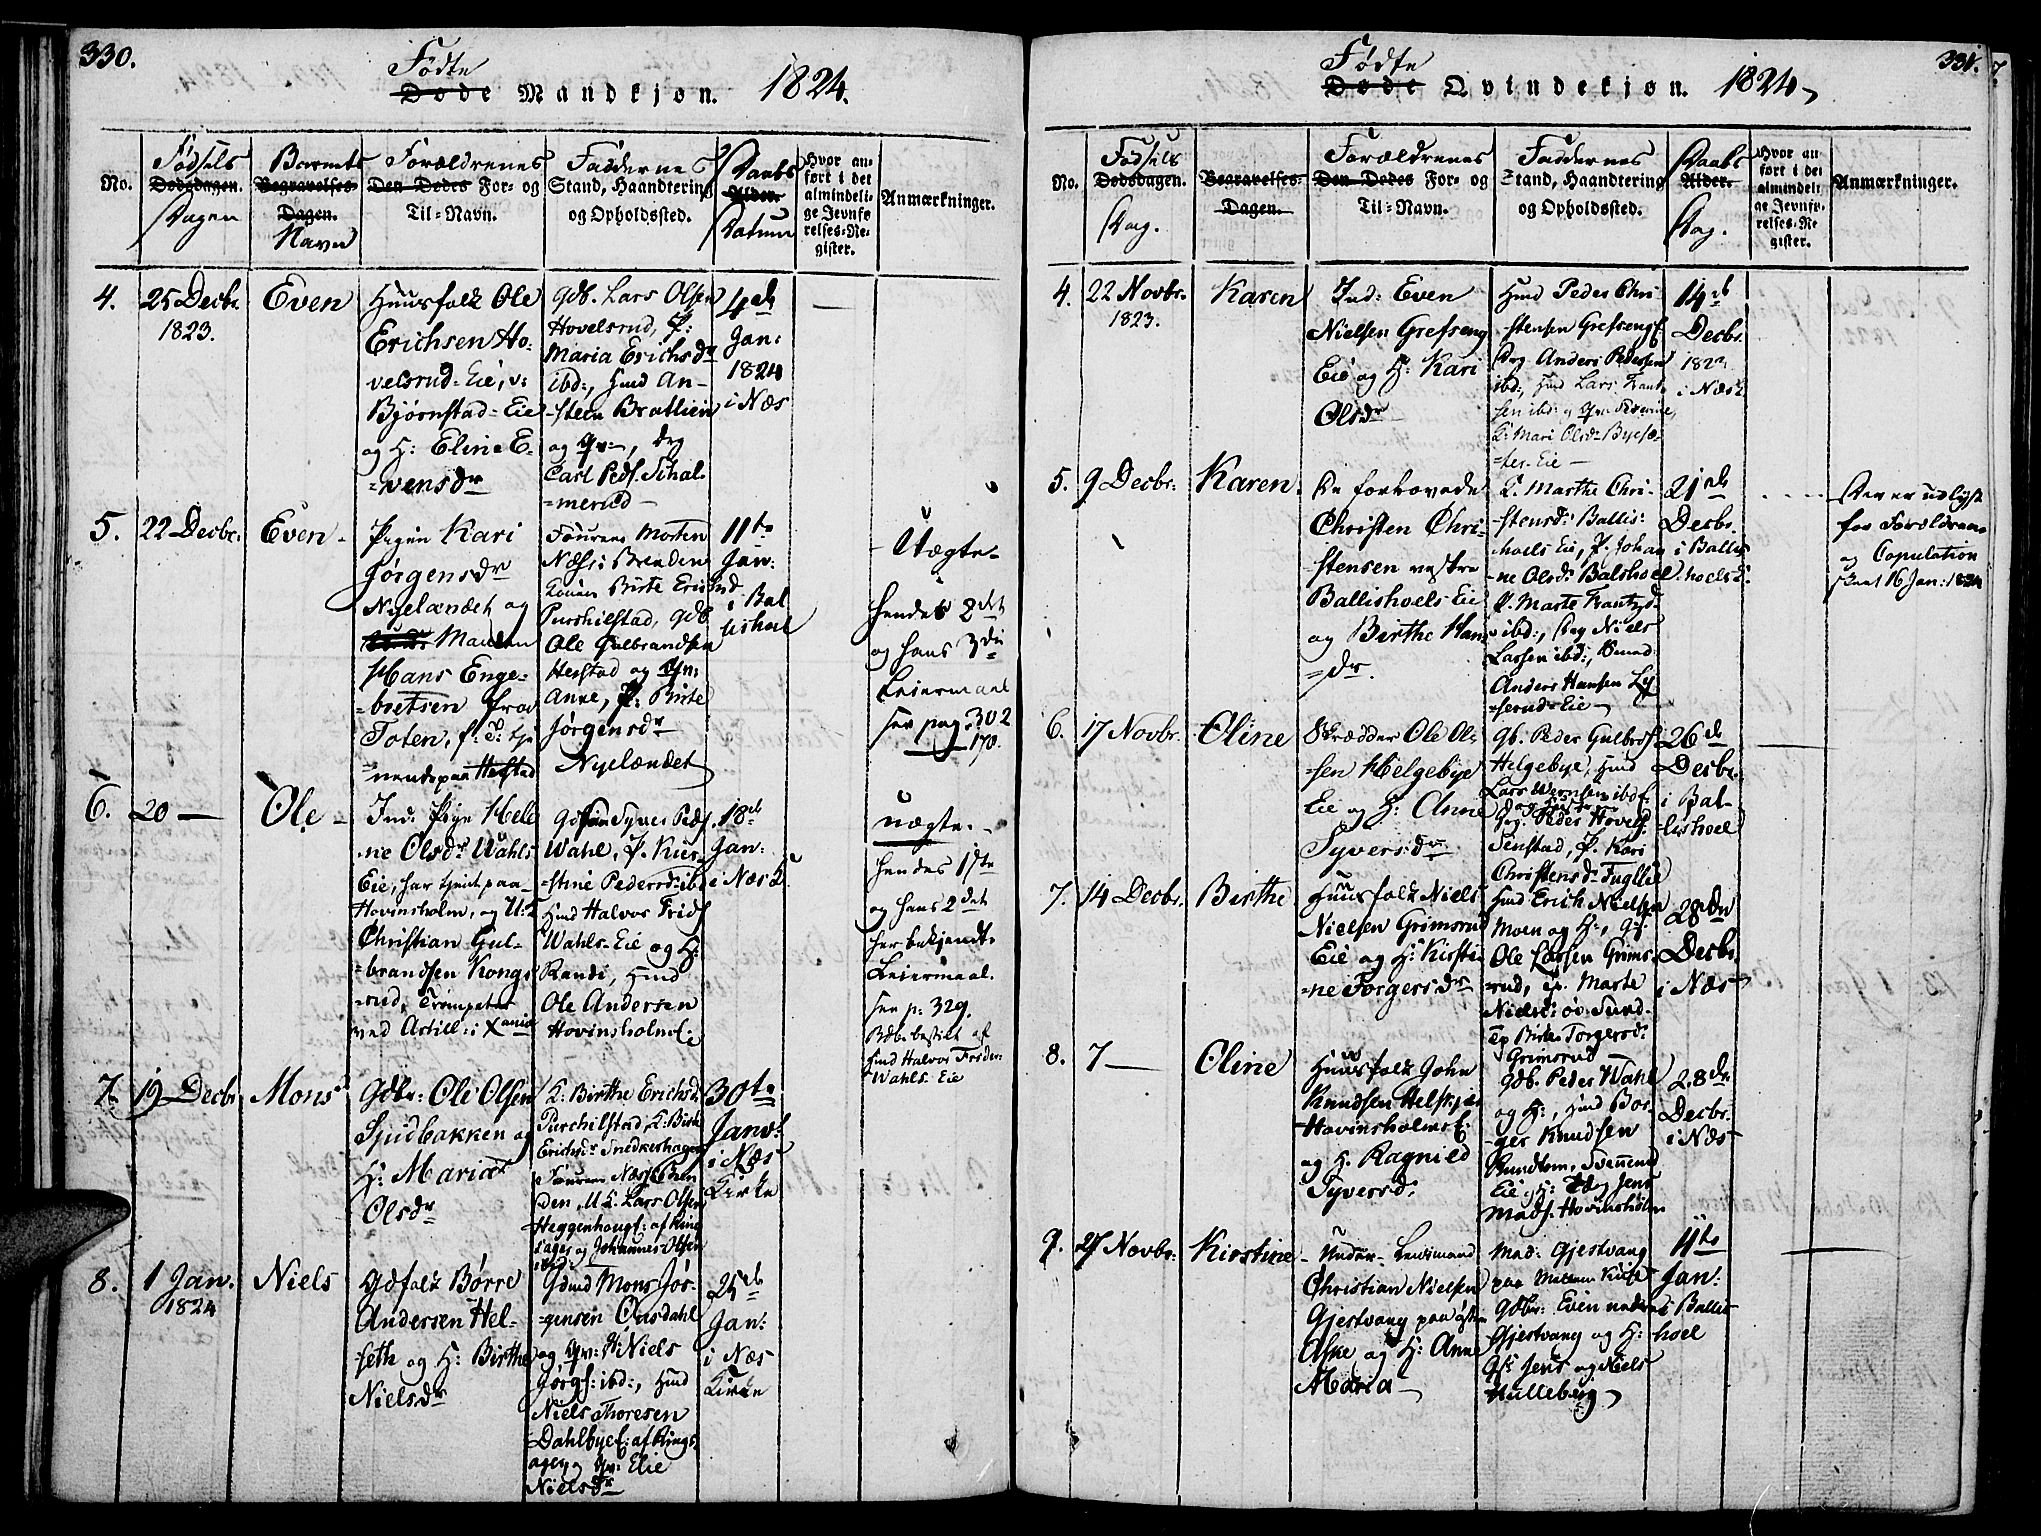 330.
Fødte
Døde Mandkjøn. 1824.
No.
Fødsels
Dødsdagen.
Dagen
Barnets
Begravelses-
Dagen.
Navn
Forældrenes
Den Dødes For- og
Til-Navn.
Faddernes
Stand, Haandtering
og Opholdssted.
Daabs
Alder.
Datum
Hvor an-
ført i det
almindeli-
ge Jevnfø
relses-Re-
gister.
Anmærkninger.
4.
25 Decbr.
1823.
Even
Huusfolk Ole
Erichsen Ho-
velsrud-Eie, v:
Bjørnstad-Eie
og H: Eline E-
=vensdr
Gdb. Lars Olsen
Hovelsrud, P:
Maria Erichsdr
ibd:, Hmd An-
-sten Bratlien
og Qv:, Drg
Carl Peds. Schal-
=merud-
4de
Jan:
1824
i Næs
5.
22 Decbr.
Even-
Pigen Kari
Jørgensdr
Nyelændet og
Manden
Hans Enge-
=bretsen fra
Toten, f: T: tje
=nende paa Hefstad
Foureer Morten
Næss: Brenden
Birte Erichsd
Purchilstad, Gdb
Ole Gulbrandsen
Hefstad og Qv:
Anne, P: Birte
Jørgensdr
Nyelændet
11te
Jan:
i Bal
lishoel
Uægte-
Hendes 2det
og hans 3die
Leiermaal
see pag: 302
170.
6.
20 —
Ole-
Ind: Pige Hele
ne Olsdr Wahls
Eie, har tjent paa
Hovinsholm, og U:
Christian Gul-
=brandsen Kongs
=rud, Trompeter
ved Artill: i Xania
Syver Peds.
Wahl, P. Kier-
=stine Pedersd: ibd
Hmd Halvor Frids
Wahls-Eie og H:
Randi, Hmd
Ole Andersen
Hovinsholms E:
18de
Jan:
i Næs K.
uægte-
Hendes 1ste
og hans 2det
her bekjendte
Leiermaal.
see p: 329.
bestilt af
Hmd Halvor Freder:
Wahls Eie
7.
19 Decbr
Mons
Gdbr: Ole Olsen
Sjulbakken og
H: Maria
Olsdr
K: Birthe Erichsd:
Purchilstad, K: Birte
Erichsdr Snedkerhagen
Foureer Næss
Lars Olsen
Heggenhaug E: af Rine
sager og Johannes Olsen
ibd:
30te
Janv:
i Næs
Kirke
8.
1 Jan.
1824
Niels
Gdfolk Børre
Andersen Hel-
=seth og H: Birthe
Nielsdr
Gdmd Mons Jør-
=gensen Onsdahl
og Qv: Niels
Jørgs: ibd:, Hmd
Niels Thoresen
Dahlbye E: af Rings
ager, og Qv: Elie
Nielsdr
25de
Jan:
i Næs
Kirke
331.
Fødte
Døde Qvindekjøn. 1824.
No.
Fødsels
Dødsdagen.
Dag.
Begravelses-
Dagen.
Forældrenes
Den Dødes For- og
Til-Navn.
Faddernes
Stand, Haandtering
og Opholdssted.
Daabs
Alder.
Dag.
Hvor an
ført i det
almindeli-
ge Jevnfø-
relses-Re-
gister.
Anmærkninger.
4.
22 Novbr.
1823.
Karen
Ind: Even
Nielsen Grefseng
Eie og H: Kari
Olsdr
Hmd Peder Chri-
stensen Grefseng E
Drg Anders Pedersen
ibd:, Hmd Lars Frant-
sen ibd: og Qv:
K: Mari Olsd: Byesæ-
=ter-Eie —
14de
Decbr.
i Næs K
5.
9 Decbr:
Karen.
De forlovede
Christen Chri-
-stensen vestre
Ballishoels Eie
og Birthe Han
=dr.
K: Marthe Chri-
-stensd: Ballis-
hoels Eie, P. Johan
-ne Olsd: Balshoel
P. Marte Frantzd:
ibd:, Drg Niels
Larsen ibd:,
Anders Hansen Ly
=serud-Eie —
21de
Decbr.
i Ballis
hoels K:
Der er udlyst
for Forældrene
og Copulation
skeet 16 Jan: 1824
6.
17 Novbr.
Oline
Skrædder Ole Ol-
-sen Helgebye
Eie og H: Anne
Syversdr
Gb. Peder Gulbrs.
Helgebye, Hmd
Lars ibd:
og Hustr
Drg. Peder Hovels
Senstad, P. Kari
Christensdr Fugllie
26de
Decbr.
i Bal-
-lishoel
7.
14 Decbr.
Birthe
Huusfolk Niels
Nielsen Grimsrud
Eie og H: Kirsti
=ne Torgersdr
Hmd Erich Nielsen
Moen og H:, Gf:
Ole Larsen Grims-
-rud, P. Marte
Nielsd: øv. Sund-
Ep Birte Torgersd:
Grimsrud
28de
Decbr.
i Næs
8.
7 —
Oline
Huusfolk John
Knudsen Helst
Hovinsholms E:
og H. Ragnild
Syversd:
Gdb. Peder Wahl
og H:, Hmd Bor-
-ger Knudsen
Rundtom, Svennerud
Eie og H: Drg Jens
Mads: Hovinsholm
28de
Decbr.
i Næs
9.
27 Novbr:
Kirstine-
Under-Lensmand
Christian Nielsen
Gjestvang paa østre
Aske og H: Anne
Maria
Mad: Gjestvang
paa
Gdbr: Even nedre
Gjestvang og H:
Gf: Jens og Niels
Hulleberg
11te
Jan:
i Ballis-
hoel